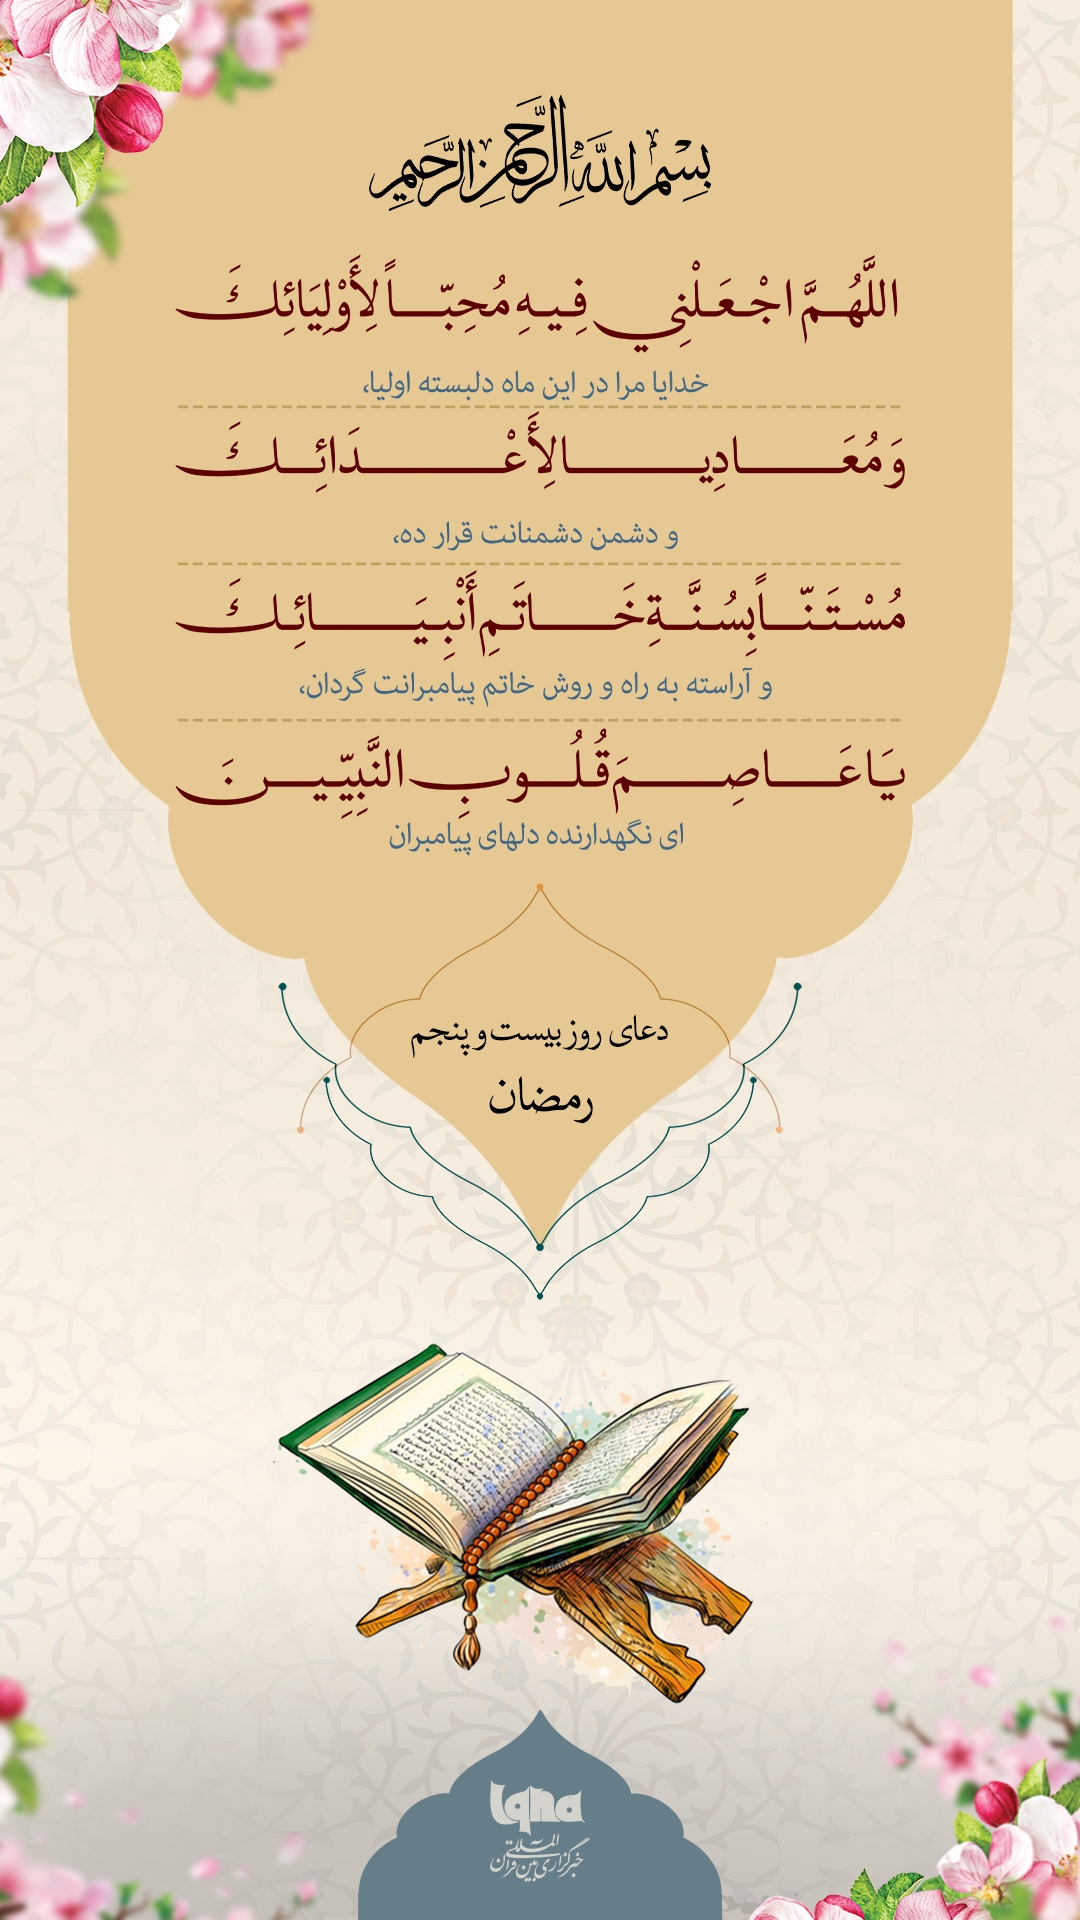 بِسْمِ اللَّهِ الرَّحْمٰنِ الرَّحِيمِ
اللَّهُمَّ اجْعَلْنِي فِيهِ مُحِبّاً لِأَوْلِيَائِكَ
خدایا مرا در این ماه دلبسته اولیا،
وَ مُعَادِيا لِأَعْدَائِكَ
و دشمن دشمنانت قرار ده،
مُسْتَنّاً بِسُنَّةِ خَاتَمِ أَنْبِيَائِكَ
و آراسته به راه و روش خاتم پیامبرانت گردان،
يَا عَاصِمَ قُلُوبِ النَّبِيِّينَ
ای نگهدارنده دلهای پیامبران
دعای روز بیست و پنجم
رمضان
Iqna
خبرگزاری بین المللی قرآن